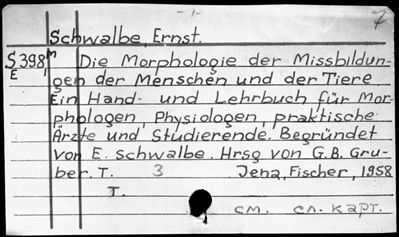 -1-
7
Schwalbe, Ernst.
S398m Die Morphologie der Missbildun-
E 1 gen der Menschen und der Tiere
Ein Hand- und Lehrbuch für Mor-
phologen, Physiologen, praktische
Ärzte und Studierende. Begründet
von E. Schwalbe. Hrsg von G.B. Gru-
ber. T. 3 Jena, Fischer, 1958
T.
см. сл. карт.